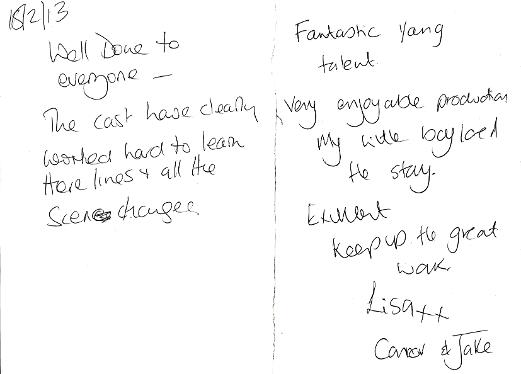 18/2/13
Well Done to
everyone –
The cast have clearly
worked hard to learn
there lines & all the
Scene changes
Fantastic Yang
talent.
Very enjoyable production
My little boy loved
the story.
Exellent
Keep up the great
work.
Lisa xx
& Jake